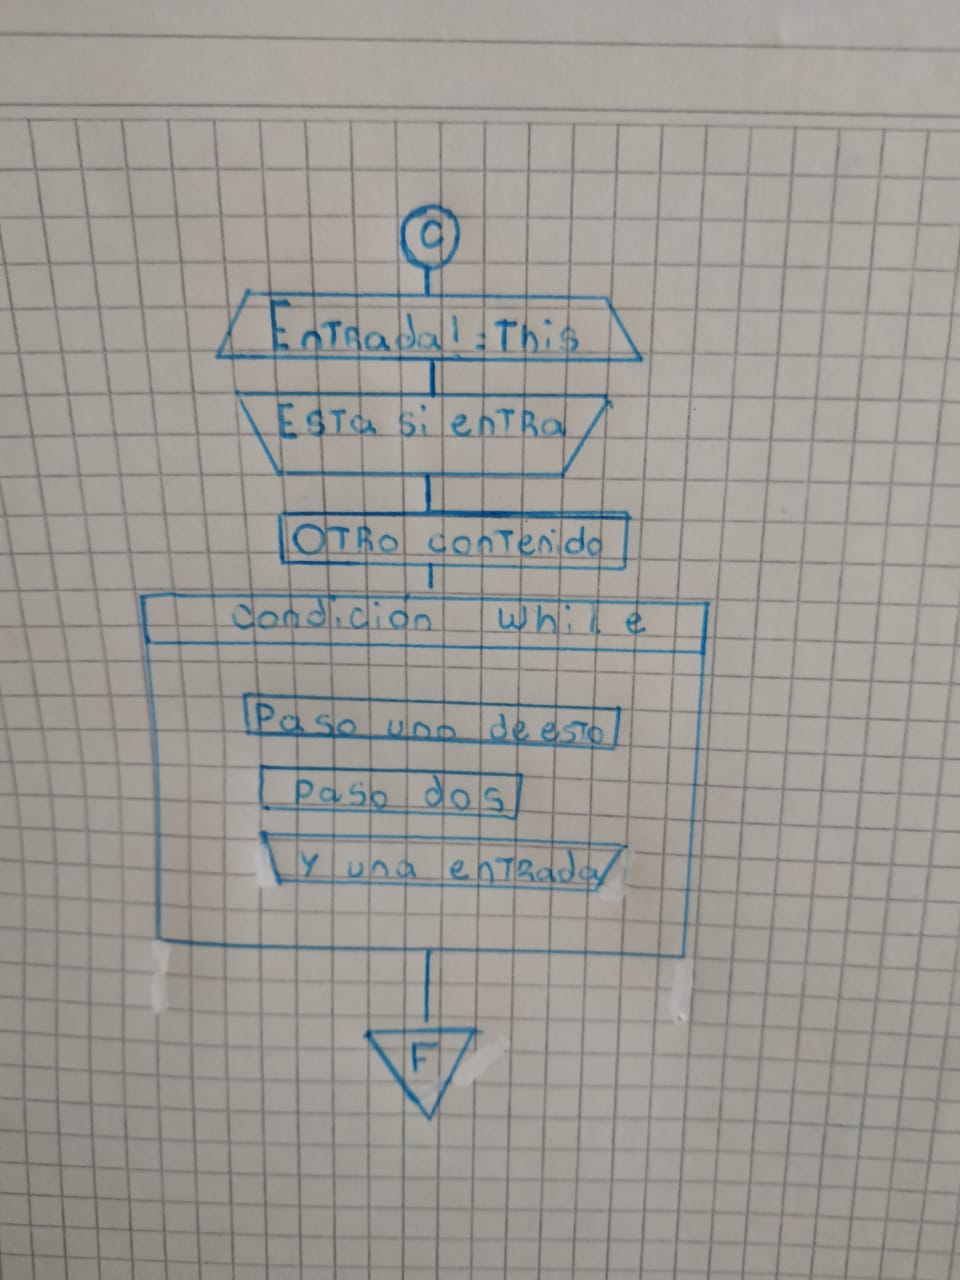 C
EnTRada!=This
ESTa si enTRa
OTRO conTenido
condición while
Paso uno de esTo
Paso dos
Y una enTRada
F